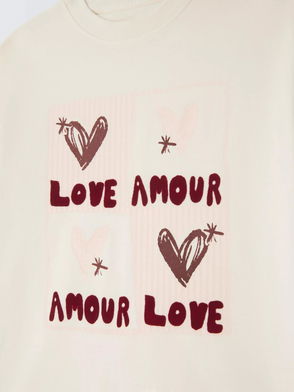 LOVE AMOUR
AMOUR LOVE